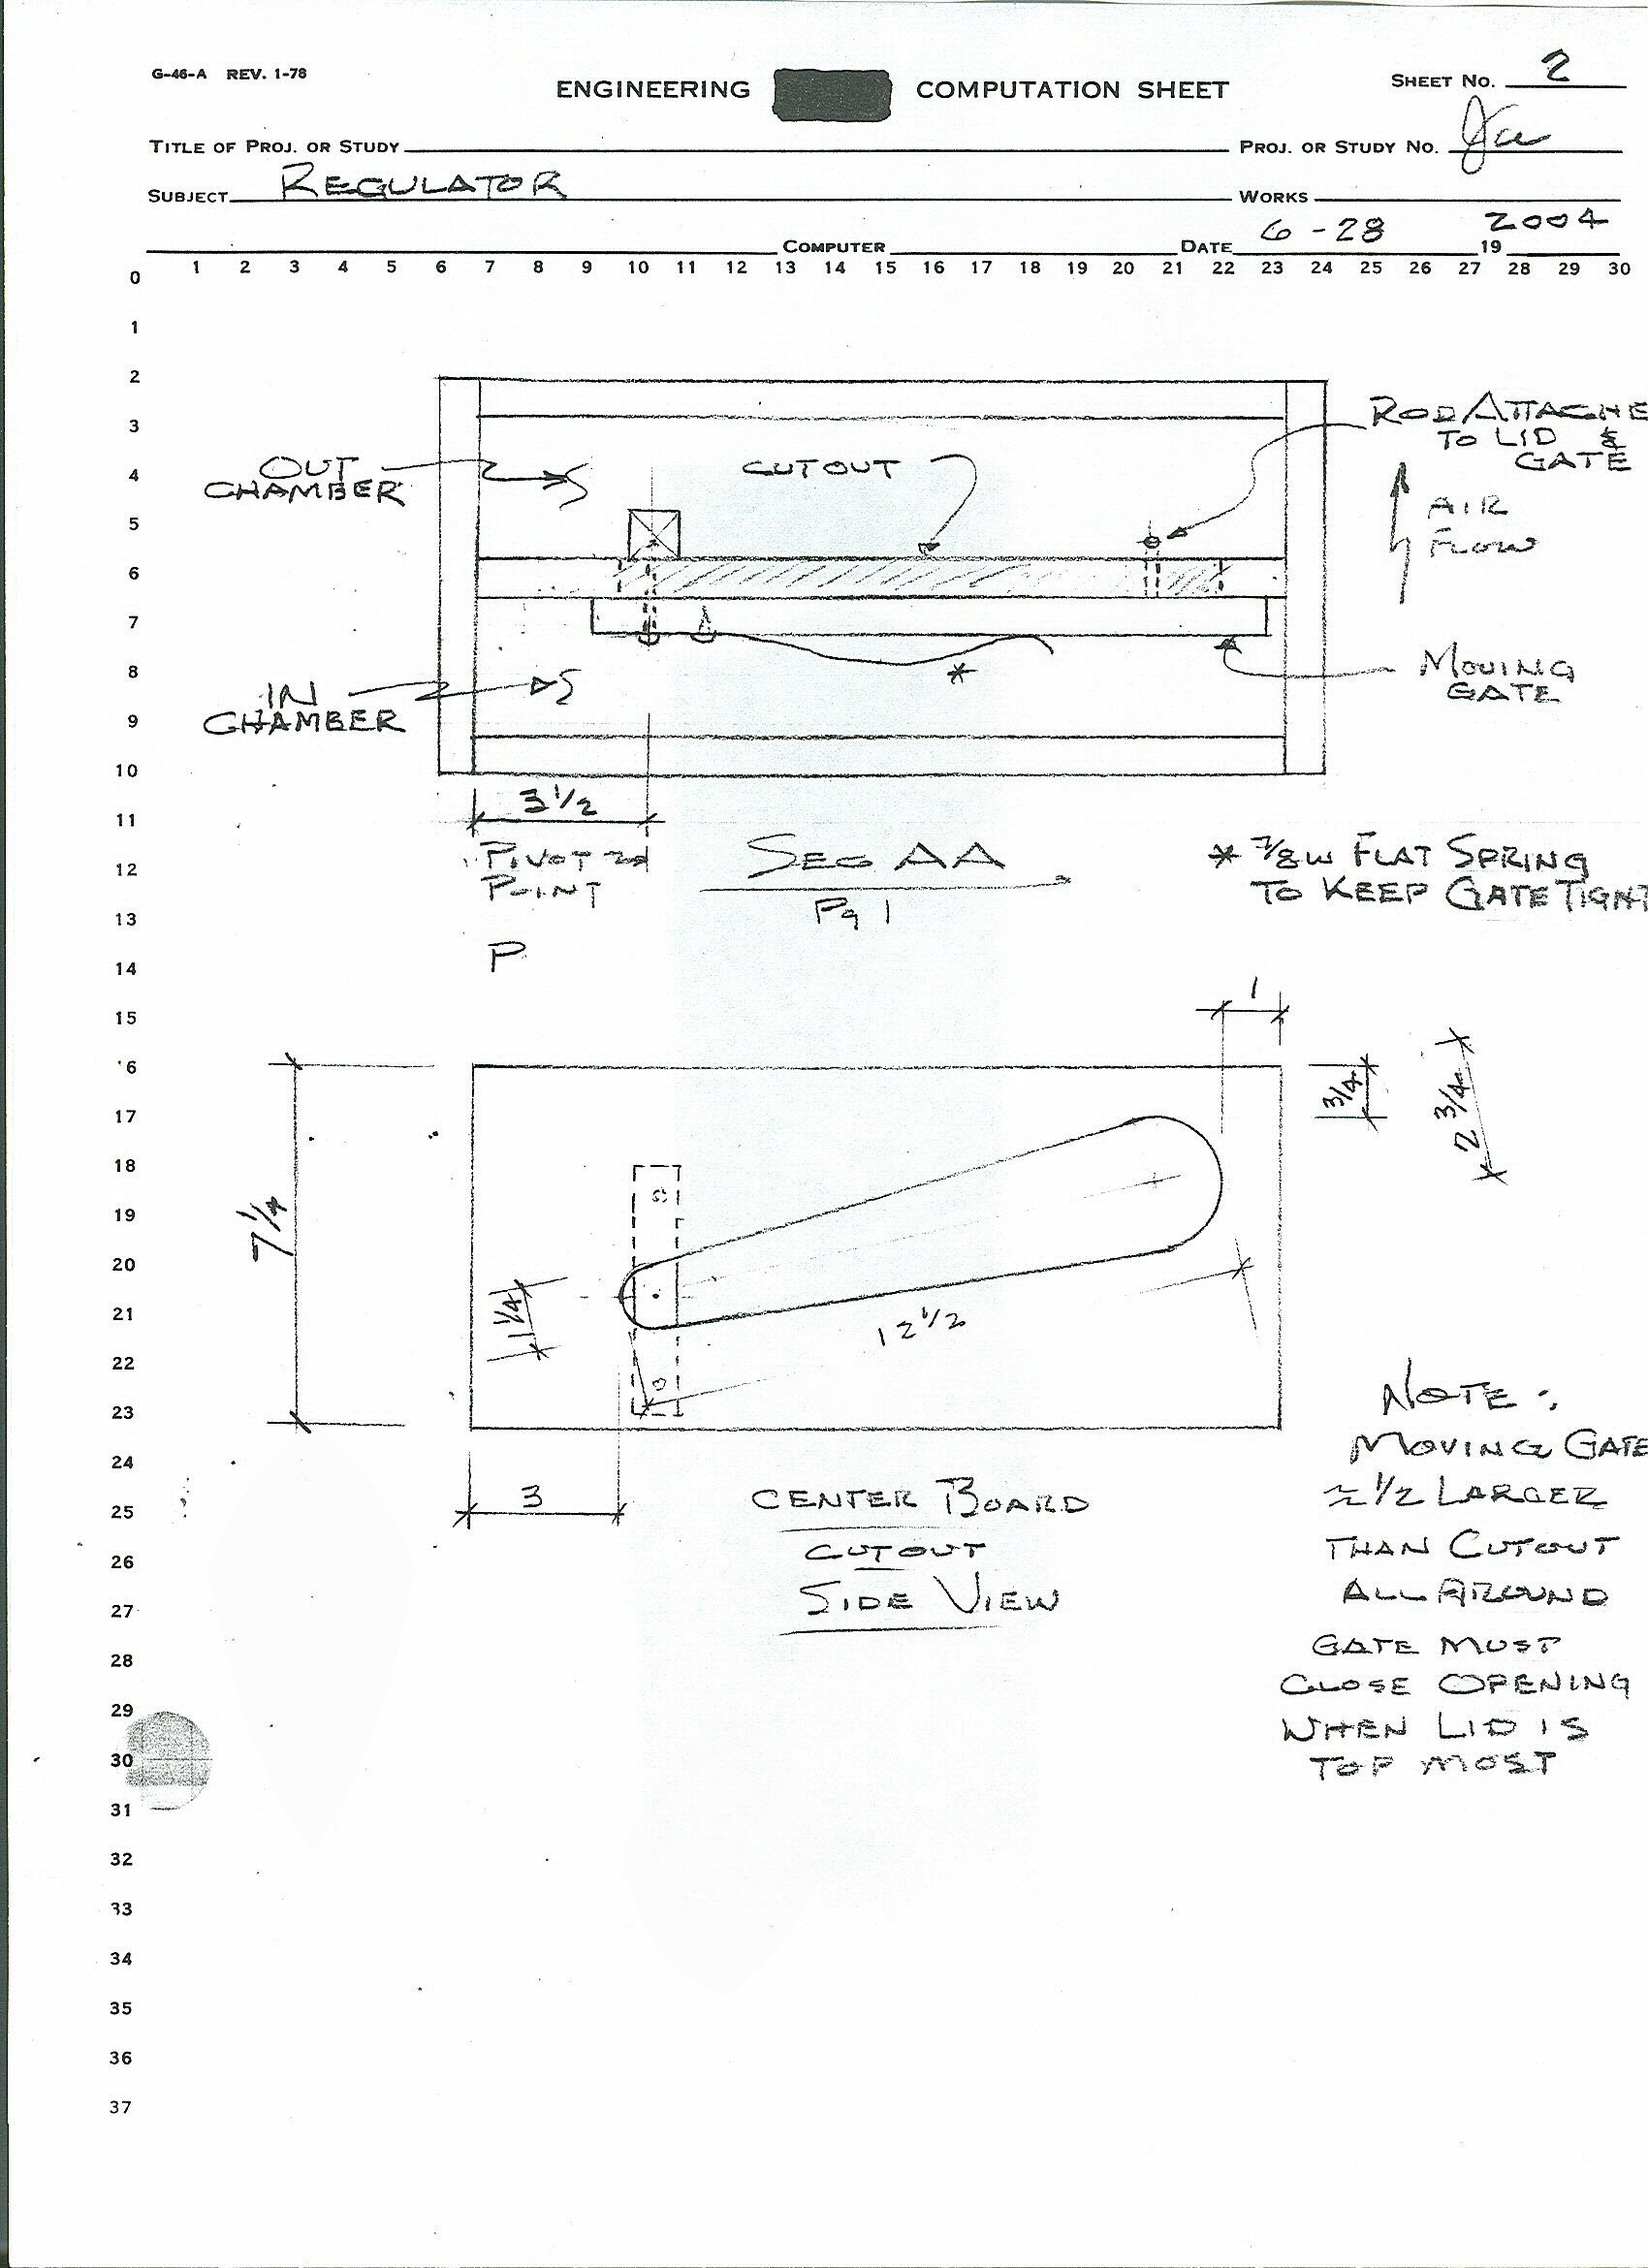 G-46-A REV. 1-78
ENGINEERING COMPUTATION SHEET
SHEET NO. 2
TITLE OF PROJ. OR STUDY
PROJ. OR STUDY NO.
SUBJECT REGULATOR
WORKS
COMPUTER
DATE 6-28 19 2004
0 1 2 3 4 5 6 7 8 9 10 11 12 13 14 15 16 17 18 19 20 21 22 23 24 25 26 27 28 29 30
1
2
3
4
5
6
7
8
9
10
11
12
13
14
15
6
17
18
19
20
21
22
23
24
25
26
27
28
29
30
31
32
33
34
35
36
37
OUT
CHAMBER
CUTOUT
ROD ATTACHE
TO LID &
GATE
AIR
FLOW
IN
CHAMBER
*
MOVING
GATE
3 1/2
PIVOT
POINT
SEC AA
Pg 1
* 7/8 W FLAT SPRING
TO KEEP GATE TIGHT
P
1
3/4
2 3/4
7 1/4
1 1/4
12 1/2
3
CENTER BOARD
CUTOUT
SIDE VIEW
NOTE:
MOVING GATE
≈ 1/2 LARGER
THAN CUTOUT
ALL AROUND
GATE MUST
CLOSE OPENING
WHEN LID IS
TOP MOST